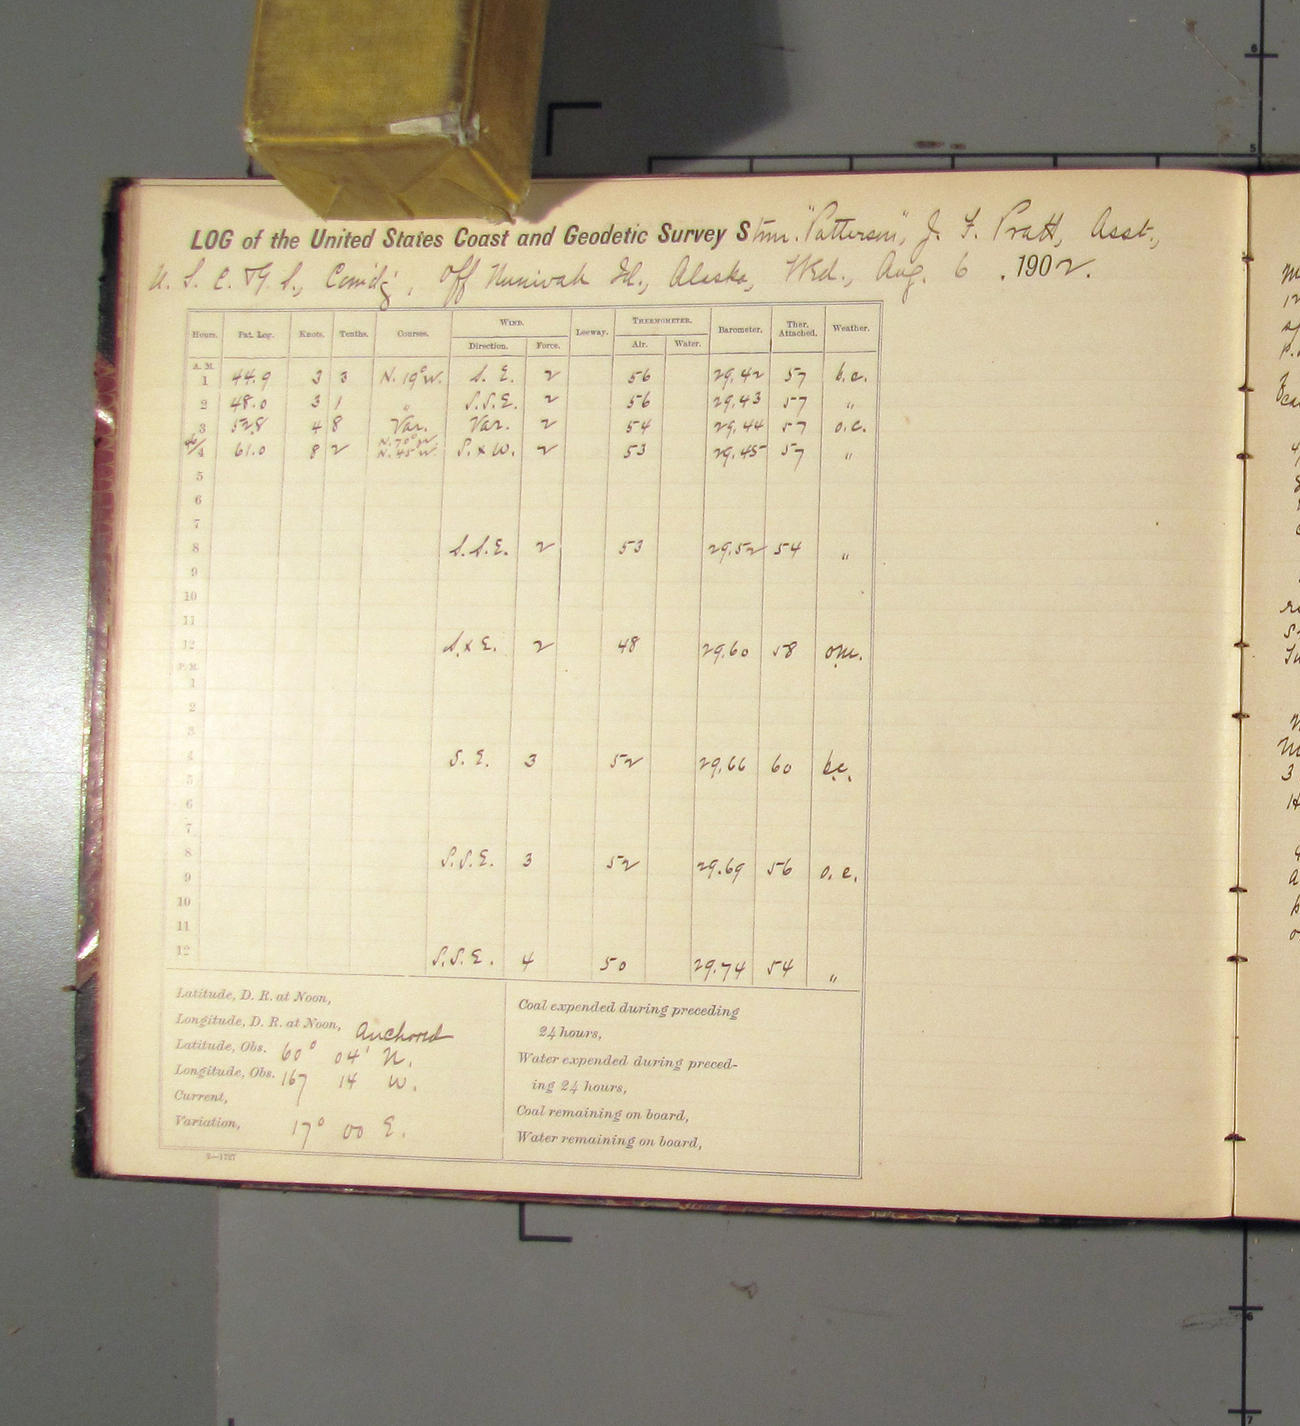 LOG of the United States Coast and Geodetic Survey Stmr. "Patterson", J. F. Pratt, Asst.,
U. S. C. & G. S., Comd'g, Off Nunivak Id., Alaska, Wed., Aug. 6, 1902.
Hours. Pat. Log. Knots. Tenths. Courses. WIND. Leeway. THERMOMETER. Barometer. Ther. Attached. Weather.
Direction. Force. Air. Water.
A. M.
1 44.9 3 3 N. 19° W. S. E. 2 56 29.42 57 b.c.
2 48.0 3 1 " S.S.E. 2 56 29.43 57 "
3 52.8 4 8 Var. Var. 2 54 29.44 57 o.c.
N. 70° W.
4 61.0 8 2 N. 45° W. S. x W. 2 53 29.45 57 "
5
6
7
8 S.S.E. 2 53 29.52 54 "
9
10
11
12 S. x E. 2 48 29.60 58 om.
P. M.
1
2
3
4 S. E. 3 52 29.66 60 b.c.
5
6
7
8 S.S.E. 3 52 29.69 56 o.c.
9
10
11
12 S.S.E. 4 50 29.74 54 "
Latitude, D. R. at Noon,
Longitude, D. R. at Noon, Anchored
Latitude, Obs. 60° 04' N.
Longitude, Obs. 167 14 W.
Current,
Variation, 17° 00 E.
Coal expended during preceding
24 hours,
Water expended during preced-
ing 24 hours,
Coal remaining on board,
Water remaining on board,
2—1727
6
5
6
7